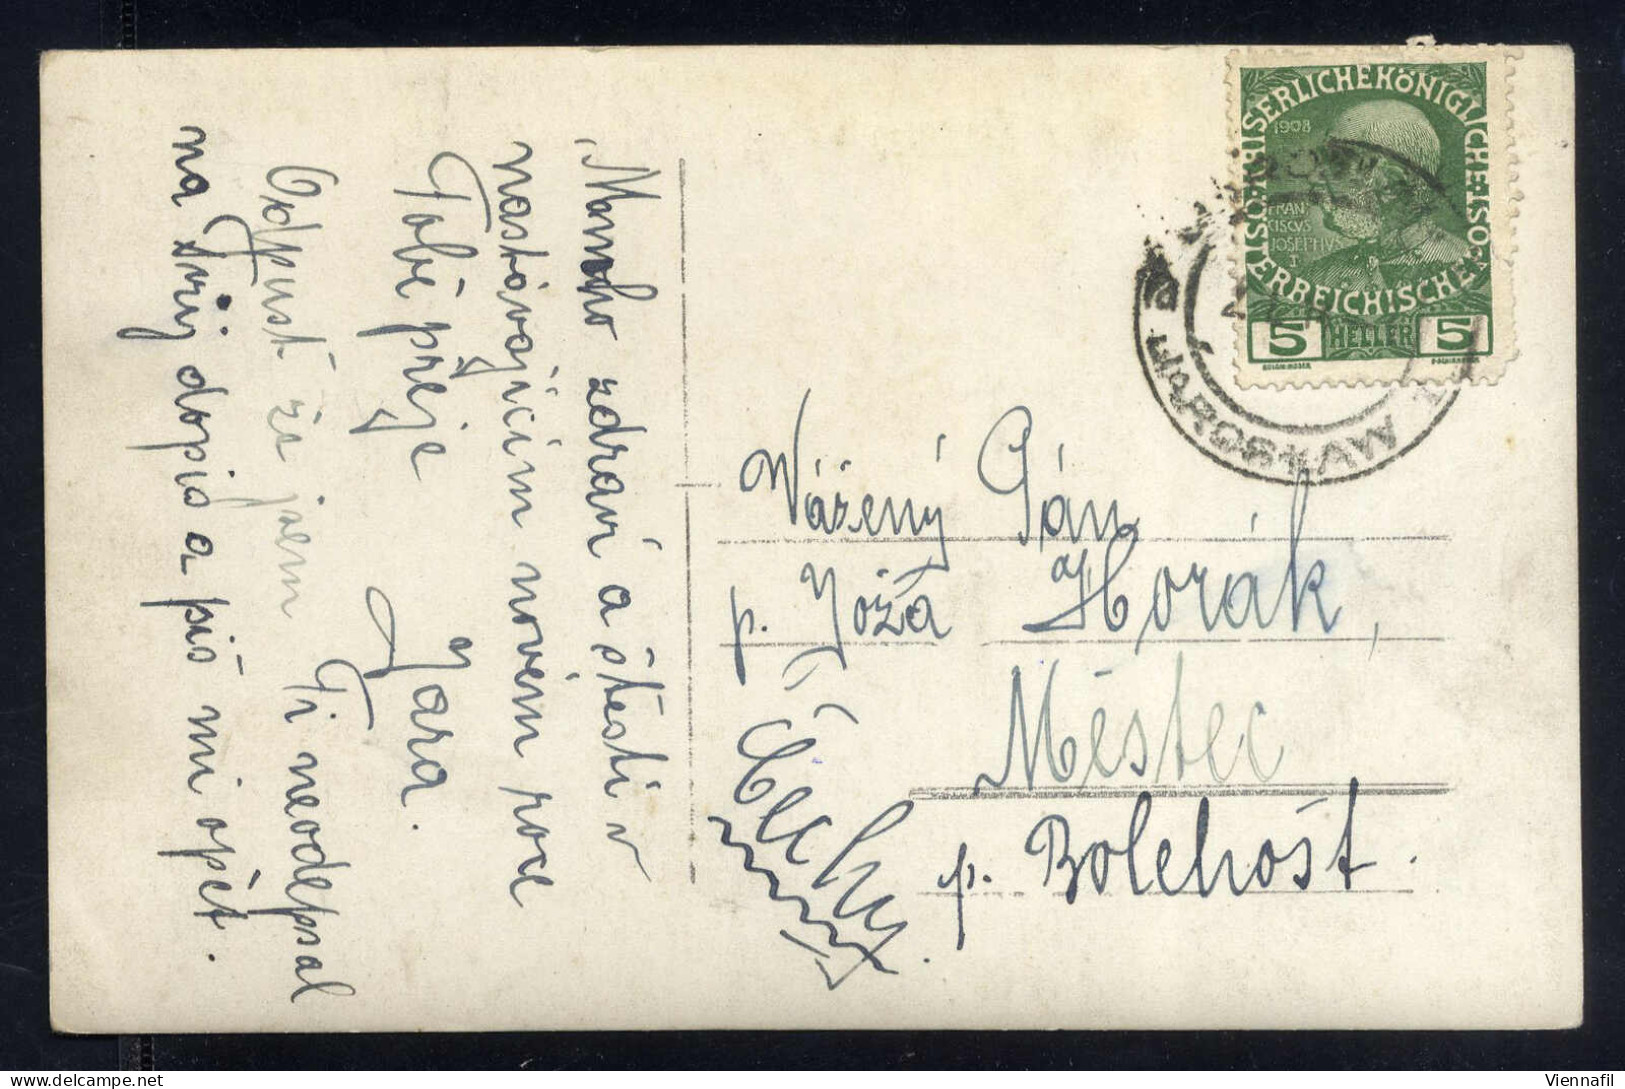 Mnoho zdraví a štěstí v
nastávajícím novém roce
Tobě přeje
Jara.
Odpusť že jsem Ti neodepsal
na Tvůj dopis a piš mi opět.
Vážený Pán
p. Joža Horák,
Městec
p. Bolehošt.
Čechy.
KAISERLICHEKÖNIGLICHE
ÖSTERREICHISCHE
1908
FRAN
CISCVS
IOSEPHVS
I
5 HELLER 5
JAROSŁAW
Viennafil